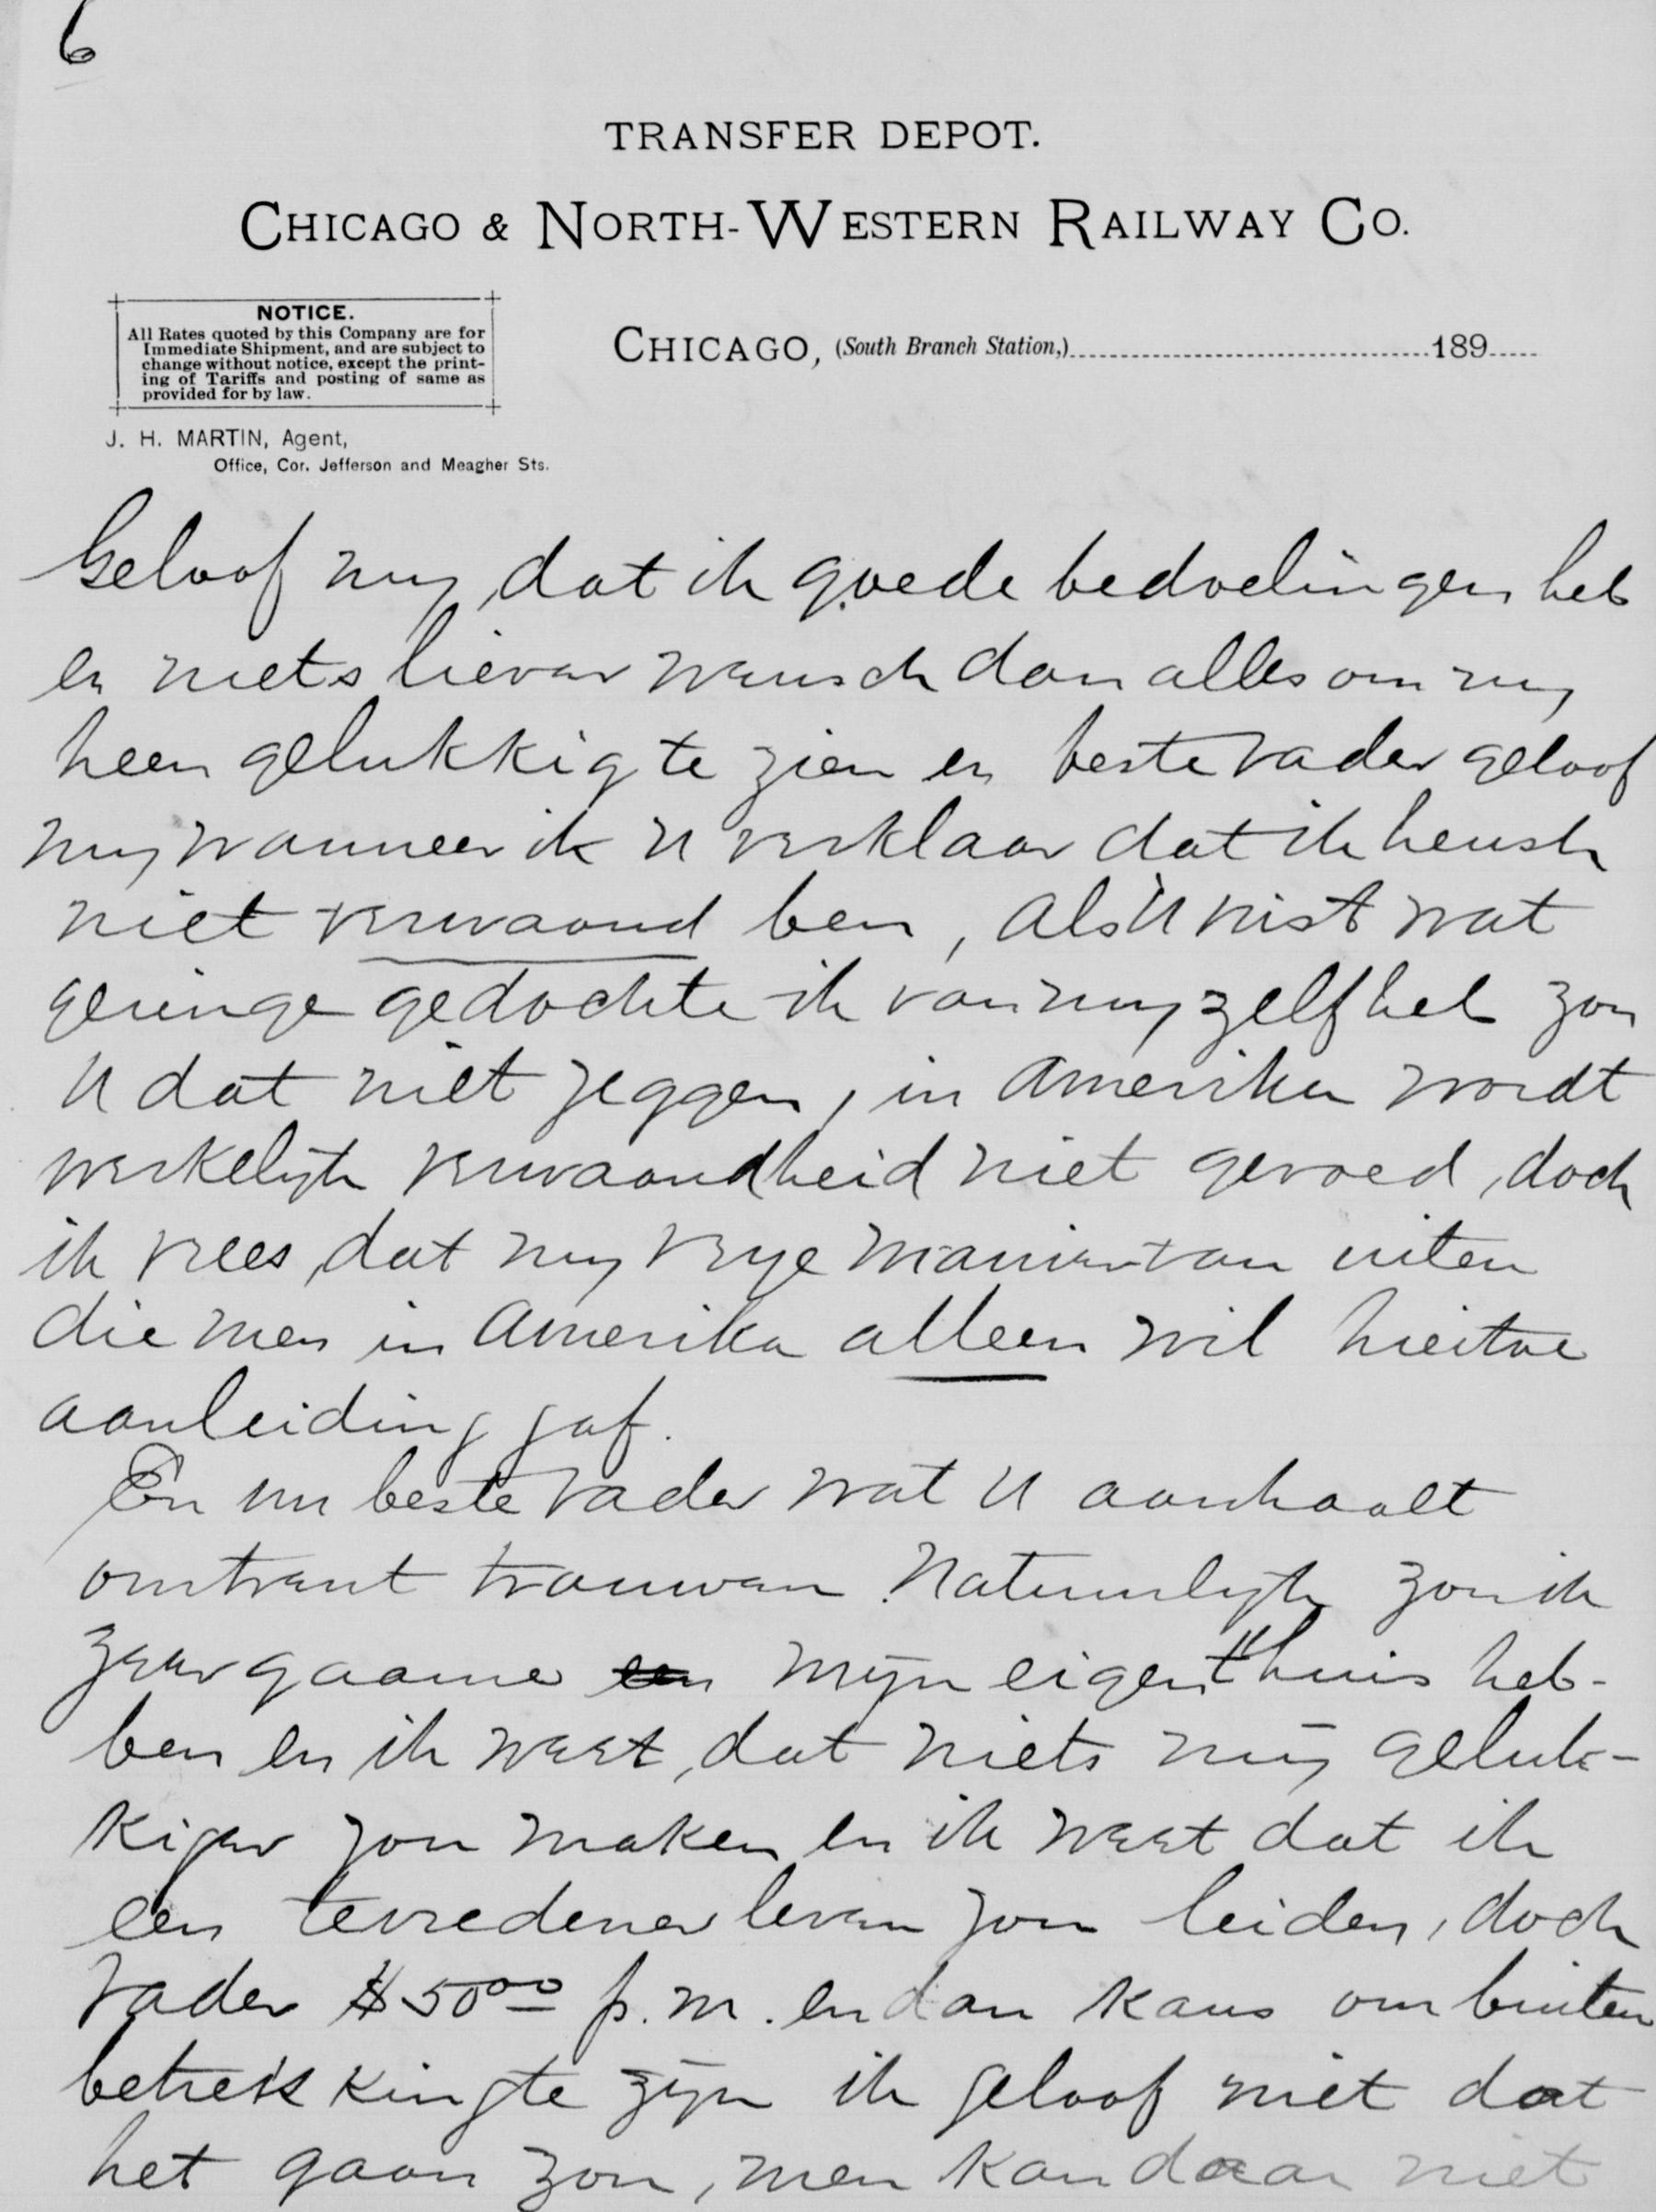 6
TRANSFER DEPOT.
CHICAGO & NORTH-WESTERN RAILWAY CO.
NOTICE.
All Rates quoted by this Company are for
Immediate Shipment, and are subject to
change without notice, except the print-
ing of Tariffs and posting of same as
provided for by law.
CHICAGO, (South Branch Station,) 189
J. H. MARTIN, Agent,
Office, Cor. Jefferson and Meagher Sts.
Geloof my, dat ik goede bedoelingen heb
en niets liever wensch dan alles om my
heen gelukkig te zien en beste Vader geloof
my wanneer ik U verklaar dat ik heusch
niet verwaand ben, als U wist wat
geringe gedachte ik van my zelf heb zou
U dat niet zeggen, in Amerika wordt
werkelyk verwaandheid niet gevoed, doch
ik vrees, dat my vrye manier van uiten
die men in Amerika alleen wil hiertoe
aanleiding gaf.
En nu beste Vader wat U aanhaalt
omtrent trouwen. Natuurlyk zou ik
zeer gaarne een mijn eigen "thuis heb-
ben en ik weet, dat niets mij geluk-
kiger zou maken en ik weet dat ik
een tevredener leven zou leiden, doch
Vader $50.00 p.m. en dan kans om buiten
betrekking te zijn ik geloof niet dat
het gaan zou, men kan daar niet